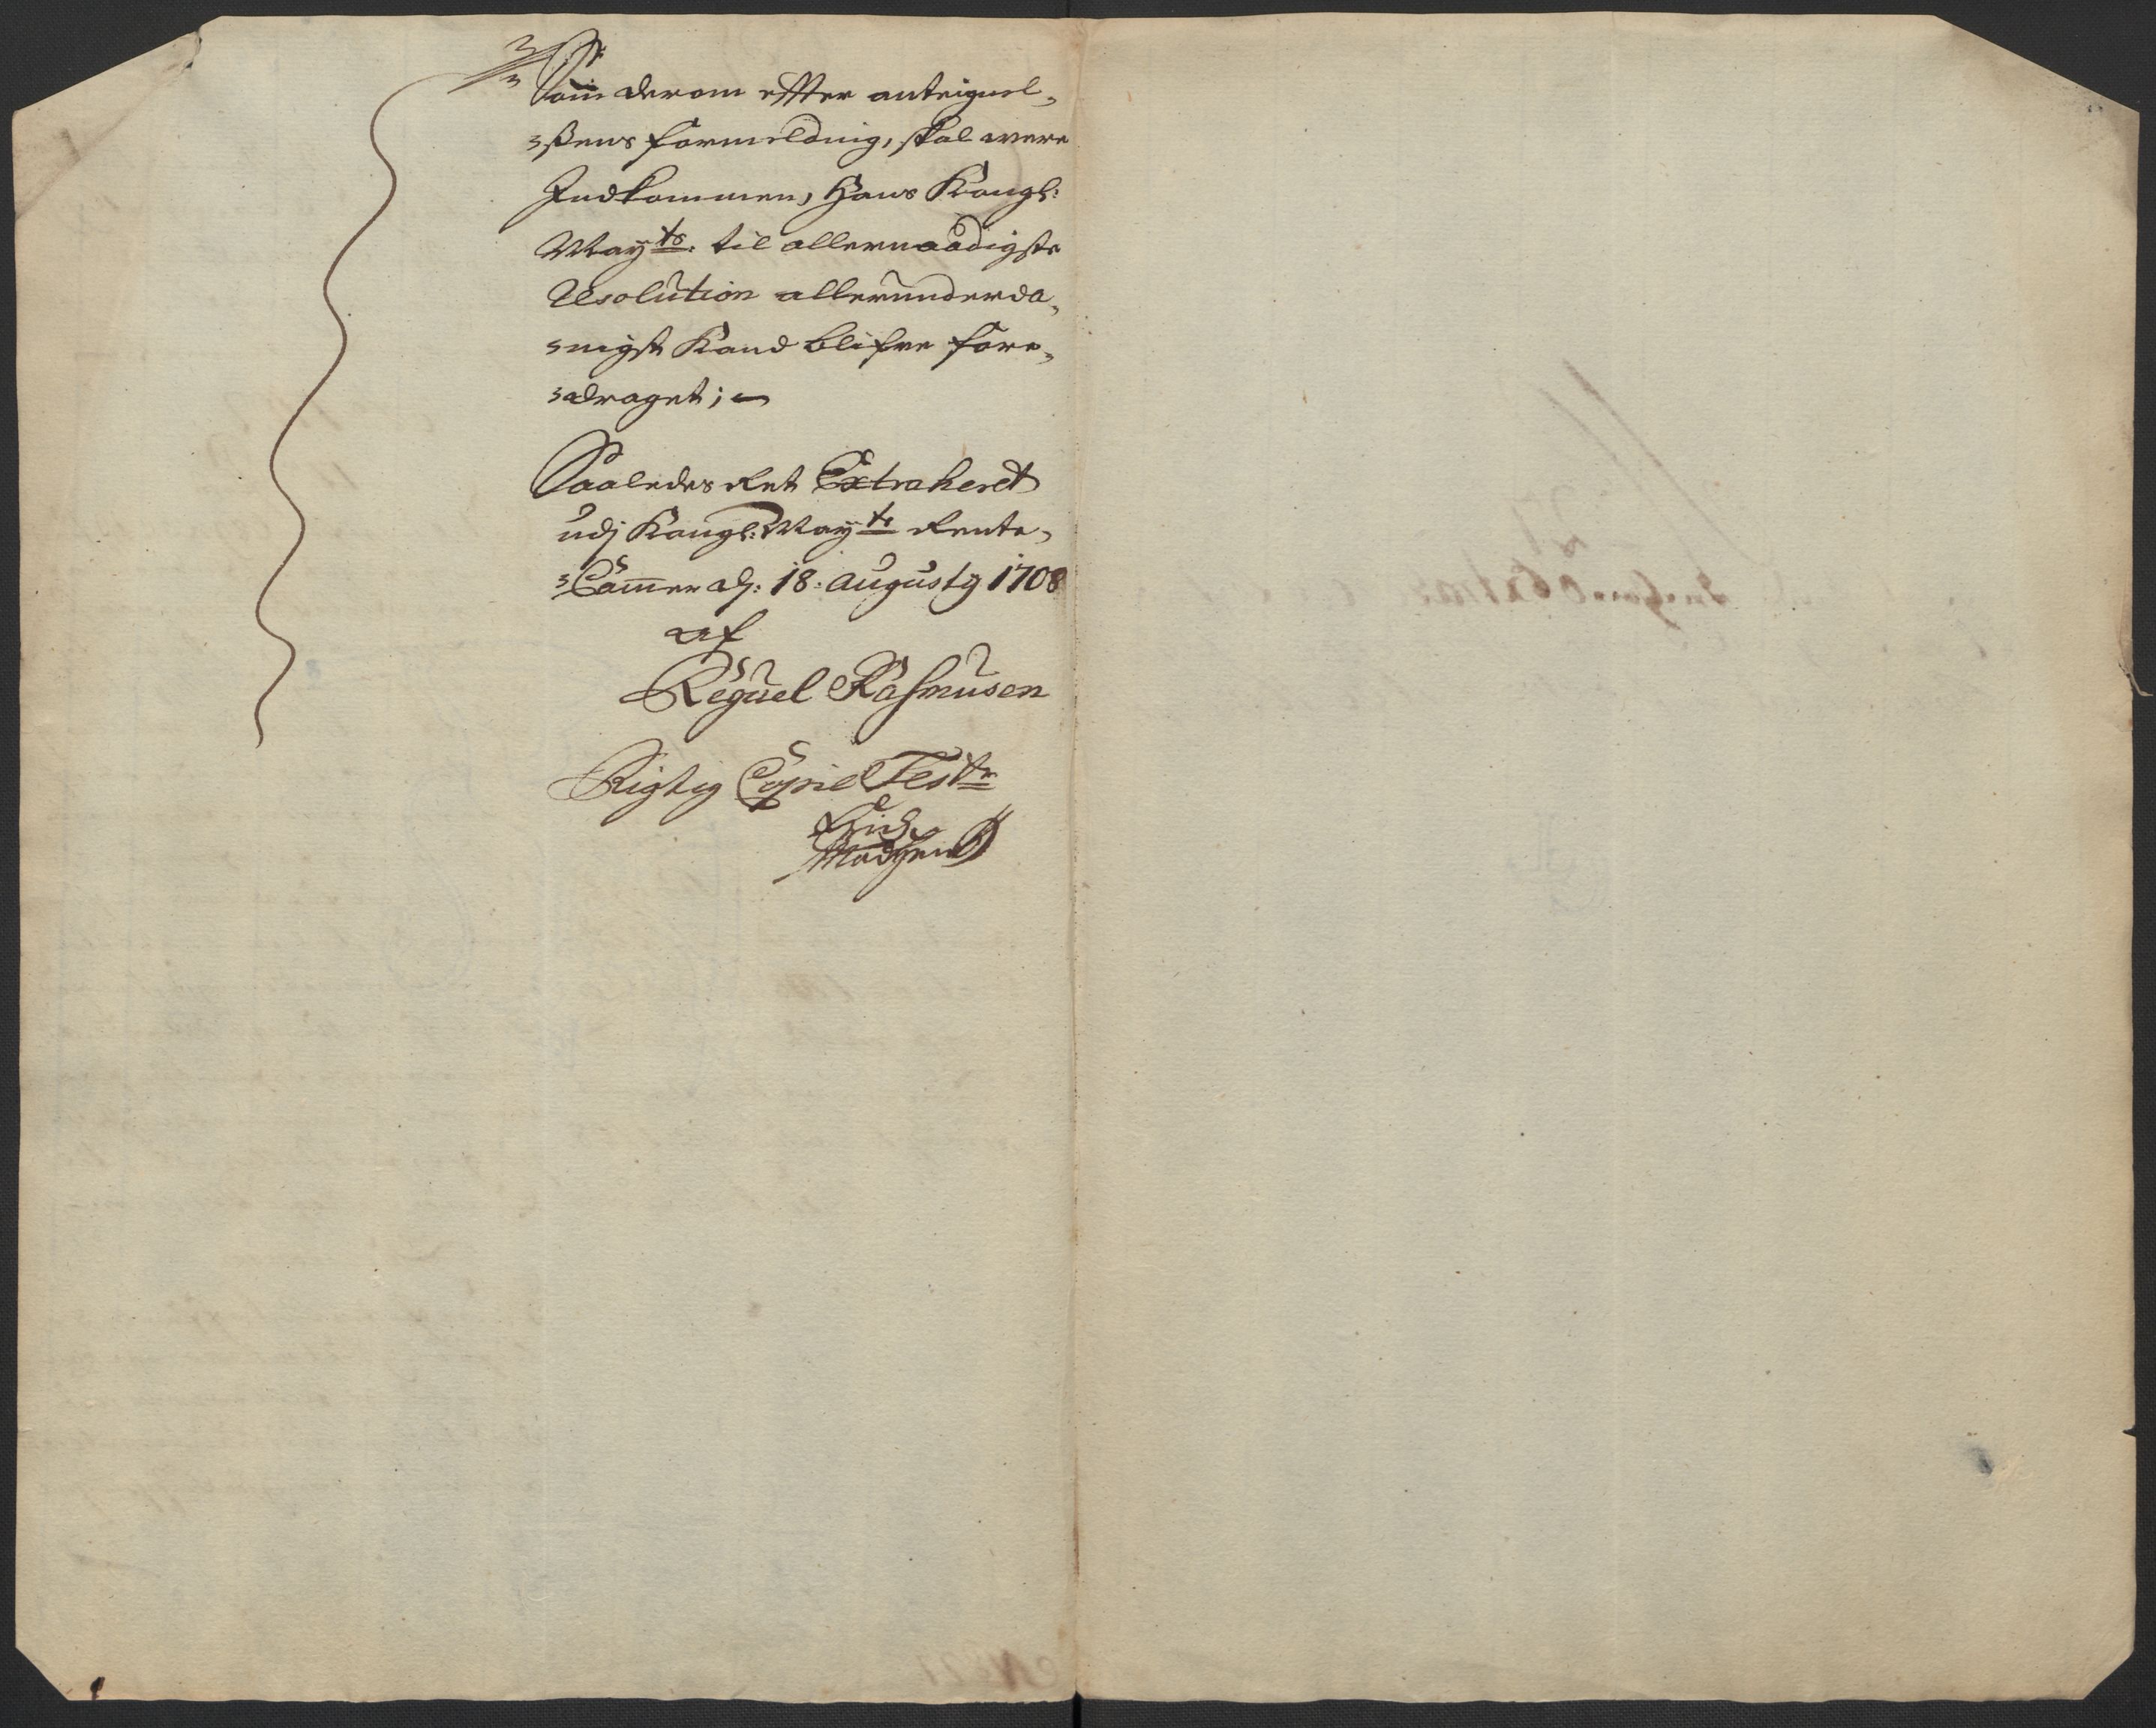 Som derom effter anteignel-
sens formelding, skal were
Indkommen, Hans Kongl:
May:ts: til allernaadigste
Resolution allerunderda-
nigst Kand blifve fore-
draget;
Saaledes Ret Extraheret
udj Kongl: May:ts Rente-
Cammer dj: 18: Augusty 1708
af
Reguel Rasmusen
Rigtig Copie Test:
Madsen